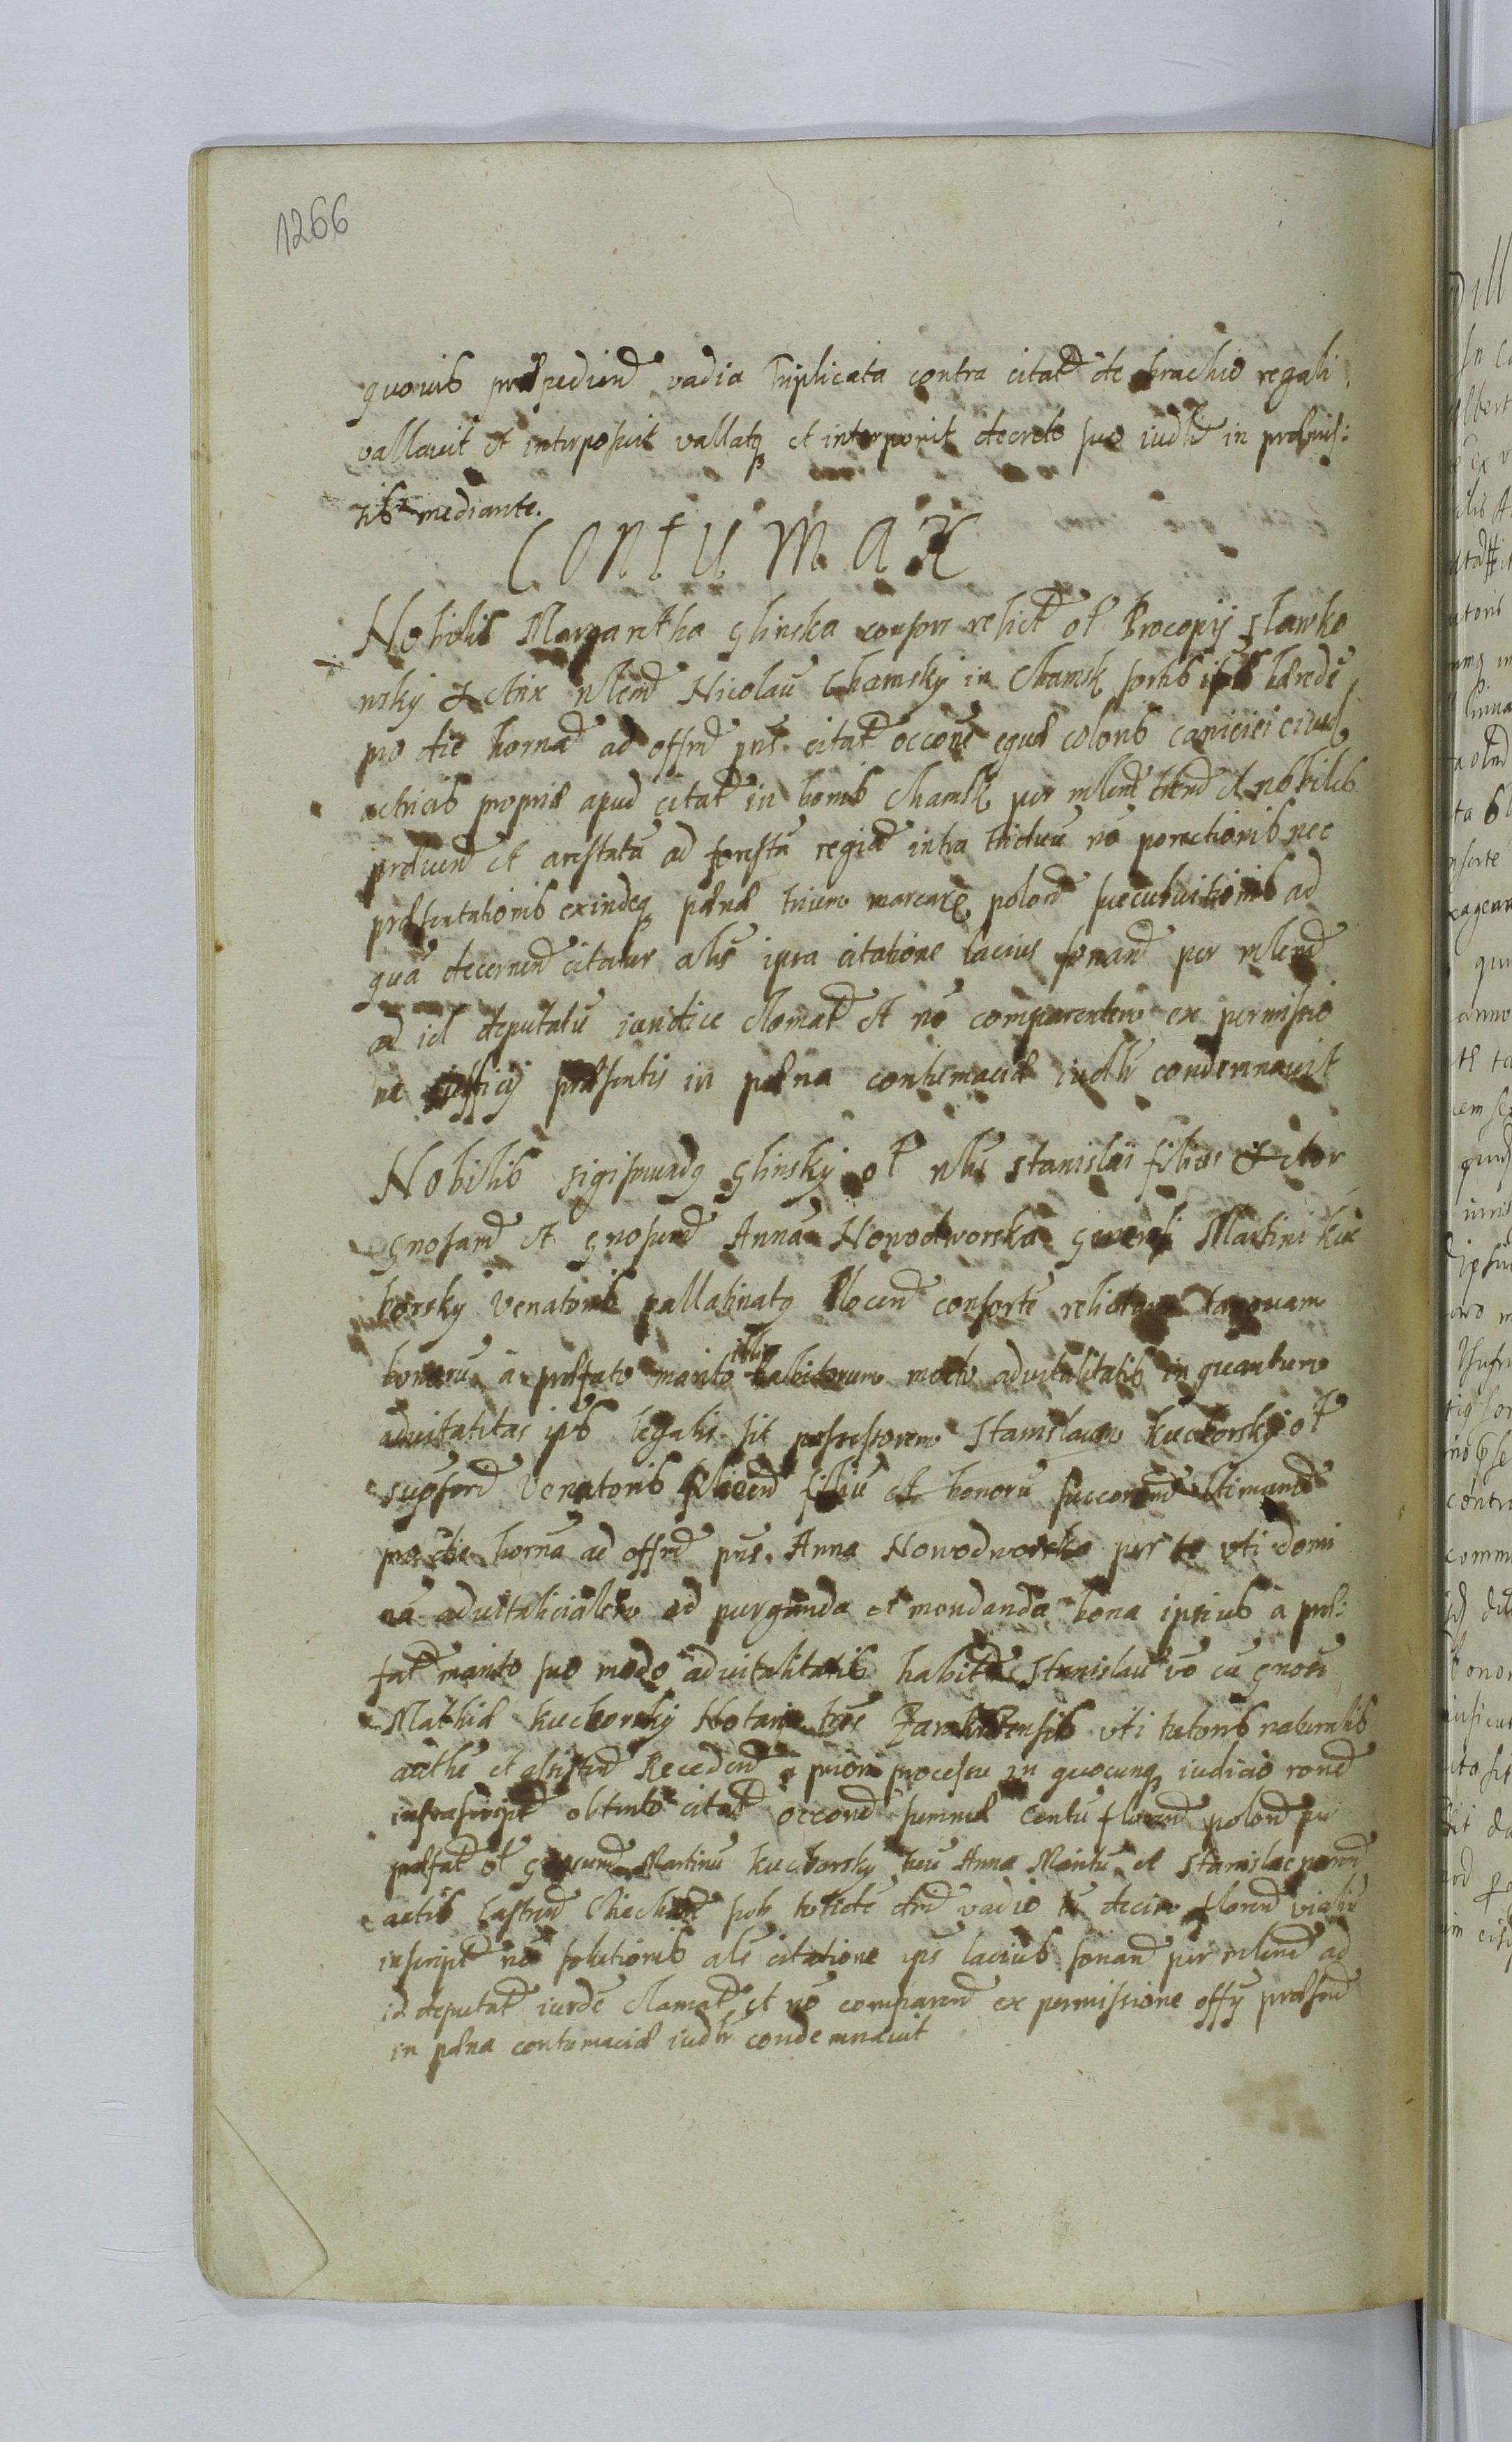 1266
quovis præpediend vadia Triplicata contra citat de brachio regali
vallavit et interposuit vallatq et interponit decreto suo iudli in præmis:
sib mediante.
CONTUMAX
Nobilis Margaretha Glinska consors relict ol Procopij Slawko
wsky Actrix nlem Nicolau Chamsky in Chamsk sortis ipsius hærede
pro die horna ad offm pns citat occone equæ coloris caniciei eiusd
actricis propriæ apud citat in bonis Chamsk per mlem et nobiles
et arestatu ad foresta regia intra triduu no porectionis nec
præsentationis exindeq pænæ trium marcar polon succubuitionis ad
qua decernend citatur alis ipsa citatione lacius sonand per mlem
ad id deputatu iuridice clamat et no comparentem ex permissio
ne officij præsentis in pæna contumaciæ iudlr condemnavit
Nobilis Sigismundg Glinsky ol nlis Stanislai filius Actor
gnosam et gnosum Anna Nowodworska generosi Martini Kuc
borsky Venatoris pallatinatg Plocen conforte relictam tanquam
bonoru a præfato marito illius habitorum modo advitalitatis in quantum
advitalitas ipsius legalis sit possessorem Stanislaum Kucborsky ol
supsord Venatoris Plocen filiu et bonoru succorem
pro die horna ad offm pns. Anna Nowodworska per te uti domi
na advitalicialem ad purganda et mondanda bona ipsius a præ:
fat marito suo modo advitalitatis habita Stanislau vo cu gnosi
Mathiæ Kucborsky Notarij tris Zawkrzensis uti tutoris naturalis
authe et assistend Recedend a priori processu in quocunq iudicio rone
infrascript obtento citat occone summæ Centu floren polon per
præfat ol gnosum Martinu Kucborsky tuu Anna Maritu et Stanislae paren
actis Castren Ciechan sub totide vadio decim floren
inscript no solutionis als citatione ips lacius sonand per mlem ad
id deputat iurde clamat et no comparend ex permissione offy præsen
in pæna contumaciæ iudlr condemnavit